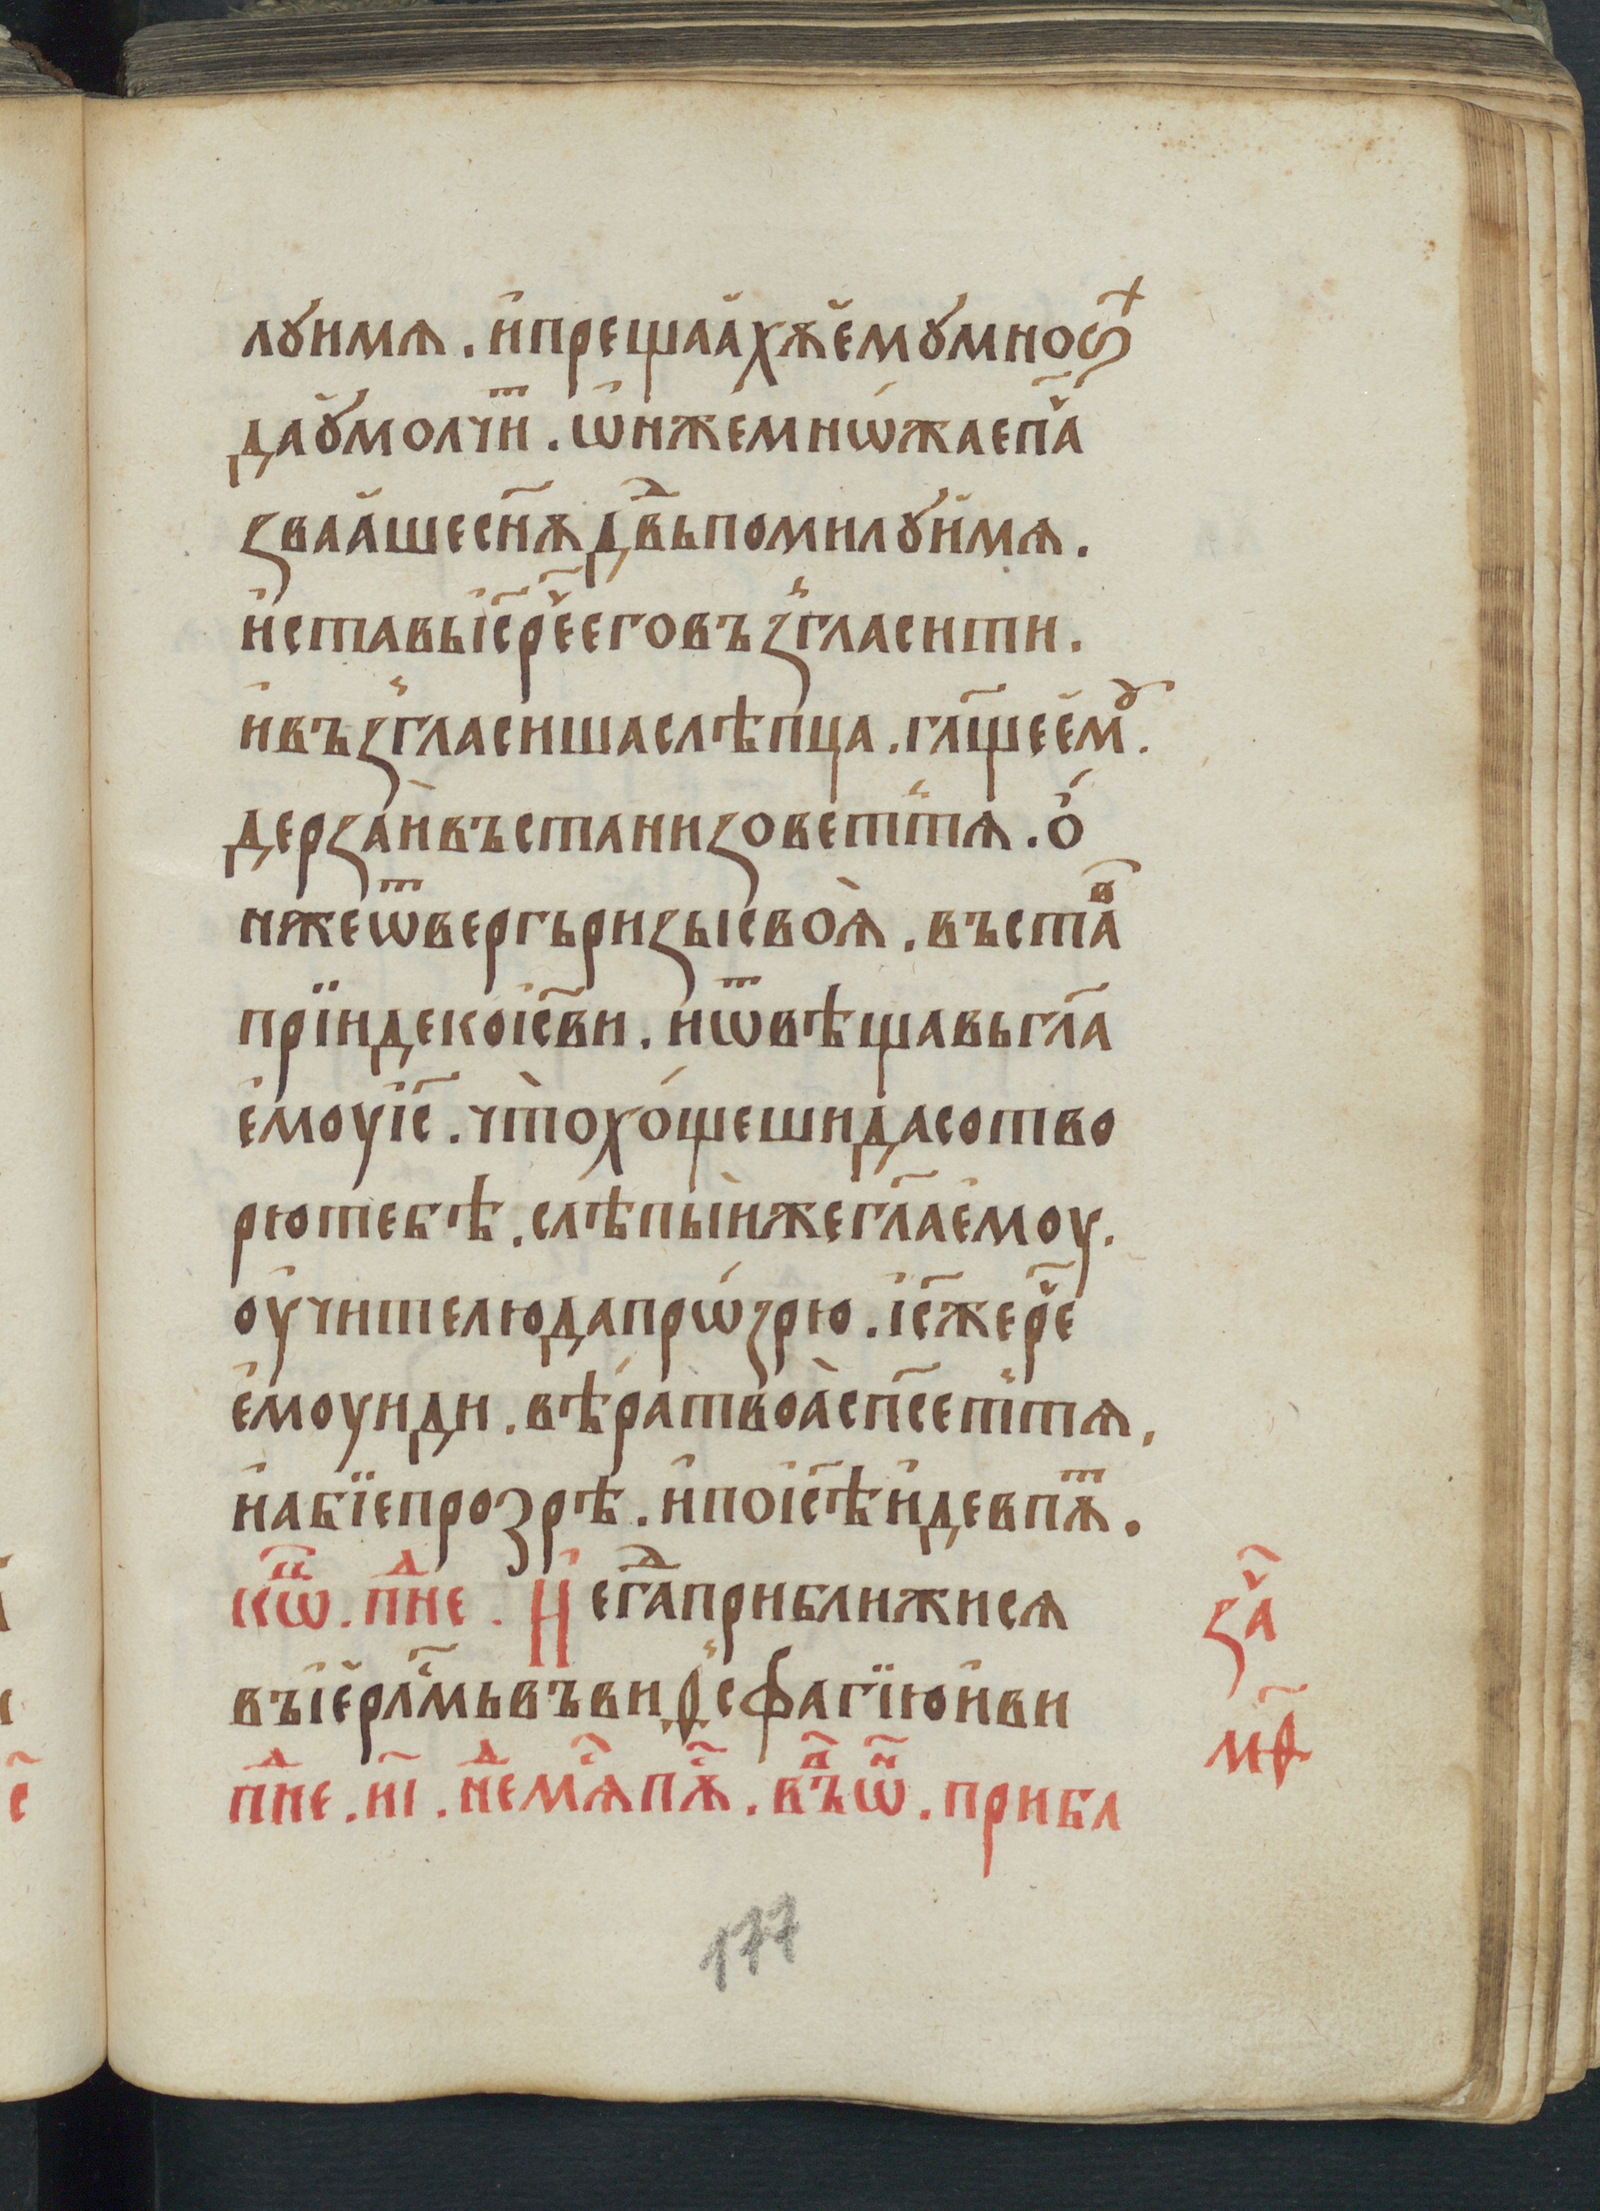 лꙋимѧ . и҆прещаа҆хѫе҆мꙋмноѕ҇и
даꙋ҆молчи̑ⷮ . ѡ҆нжемнѡ́жаепа̾ч
ꙁваа҆шесн҃ѫдв҃ⷣьпомилꙋи҆мѧ .
и҆ставьі҆с҃рече҃еговъꙁ̾гласити .
и҆въꙁ̾гласишаслѣпца . гл҃щеем҆ꙋ .
дерꙁа̀и҆въстаниꙁоветⸯтѧ . о҆́
нжеѿвергьриꙁысвоѧ̀ . въстав҃
прїидекоі҆с҃ви . иѿвѣщавьгл҃а
е҆моуі҆с҃ . что̀хо́щешидасотво
рютебѣ . слѣпыи̑жегл҃ае҆моу .
оу҆чителюдапрѡ́ꙁрю . і҆с҃жереч҃е
е҆моуиди . вѣ́ратвоа̀сп҃сетⸯтѧ .
и҆абїепрозрѣ . и҆поі҆с҃ѣи҆девпѫⷮ .
кѡⷩ҇ . пⷣне . И҆ егⷣаприближисѧ
въі҆е҆рл҃мьвъвиѳⸯсфагїюи҆ви
пⷣне . иі҃ . нⷣемⷭ҇ѧпⷭ҇ѫ . вⷬ҇ъѡⷩ҇ . прибл
ꙁач҃
мѳ҃
177